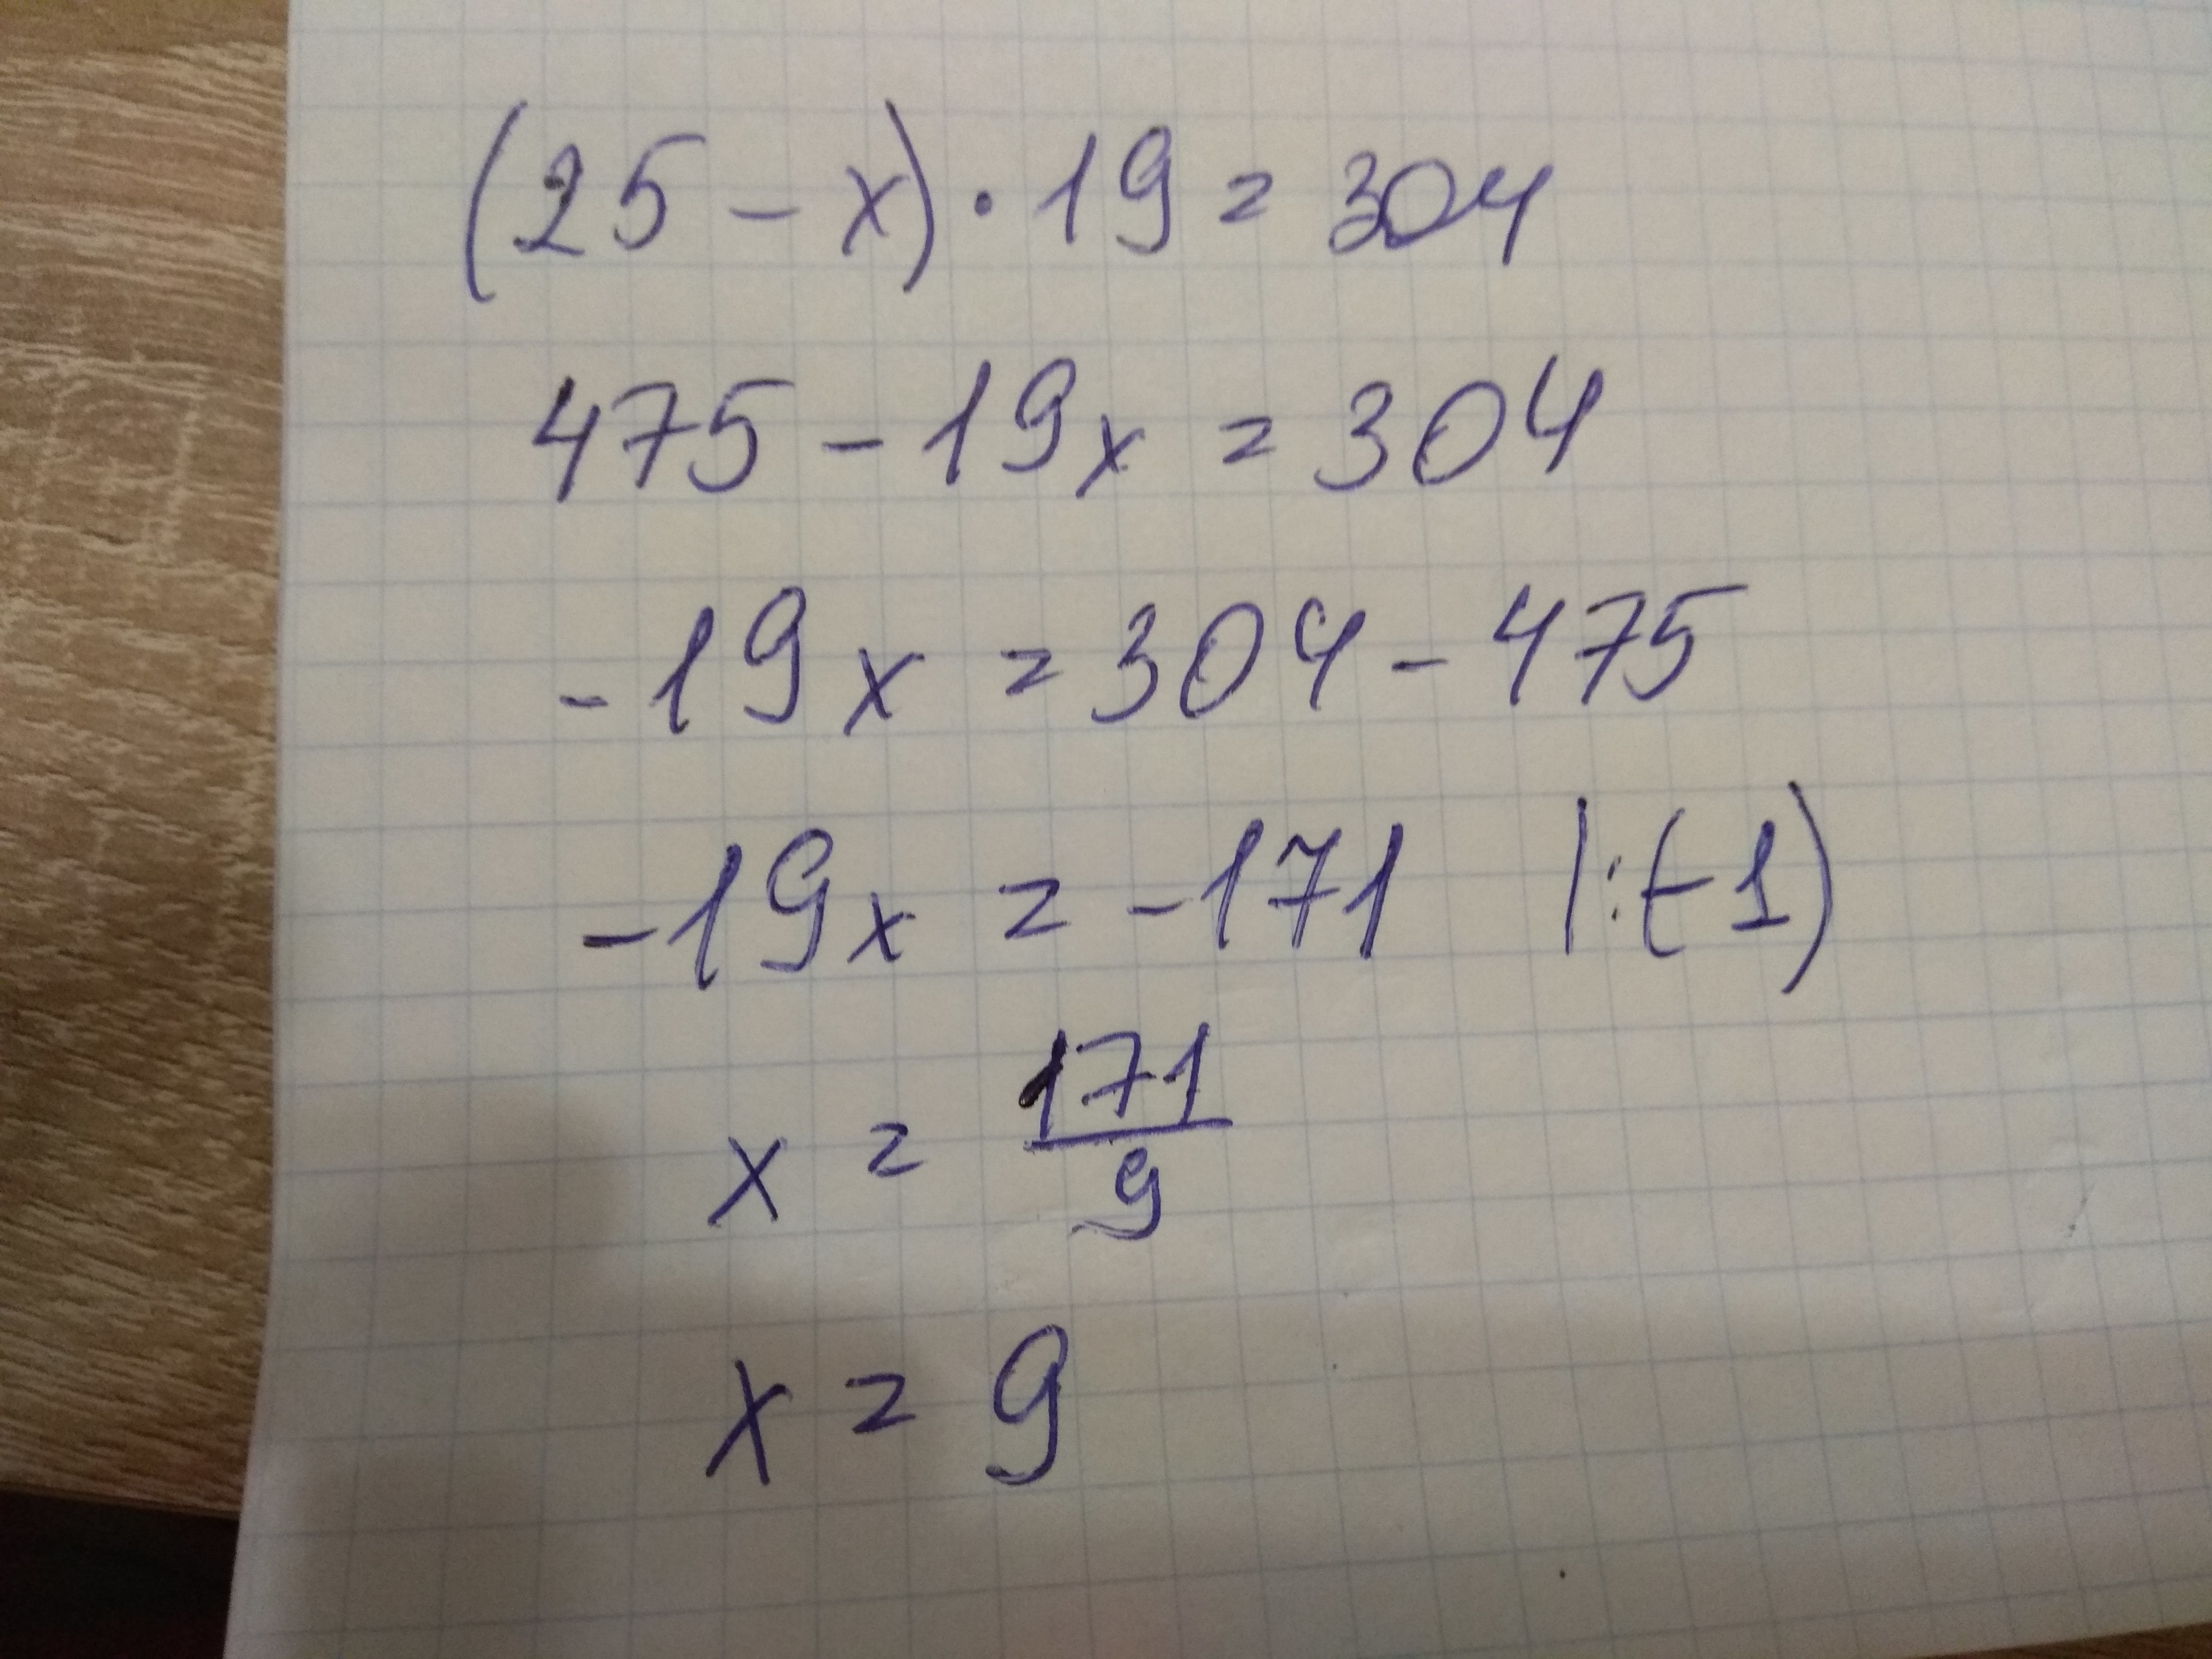 (25 - x) · 19 = 304
475 - 19x = 304
-19x = 304 - 475
-19x = -171 |:(-1)
x = 171/9
x = 9